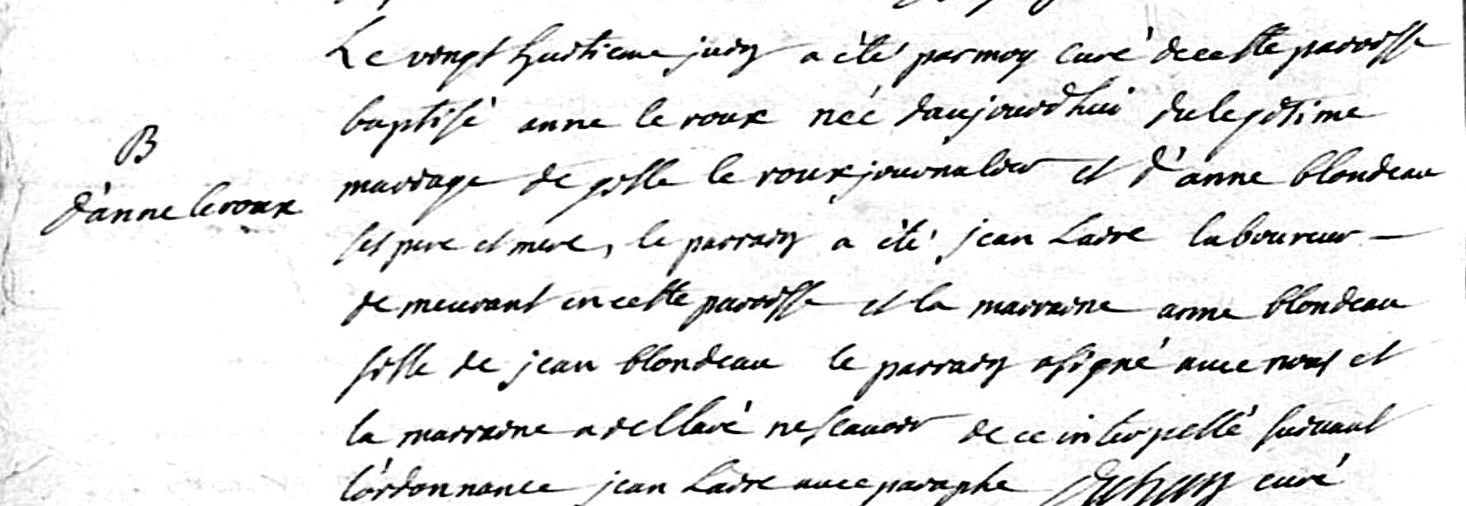 Le vingt huitieme juin a été par moy curé de cette paroisse
B
baptisé anne le roux née daujourdhui du legitime
mariage de gille le roux journalier et d'anne blondeau
d'anne le roux
ses pere et mere, le parrain a été jean Ladre laboureur —
demeurant en cette paroisse et la marraine anne blondeau
fille de jean blondeau le parrain a signé avec nous et
la marraine a declaré ne scavoir de ce interpellé suivant
l'ordonnance jean Ladre avec paraphe curé